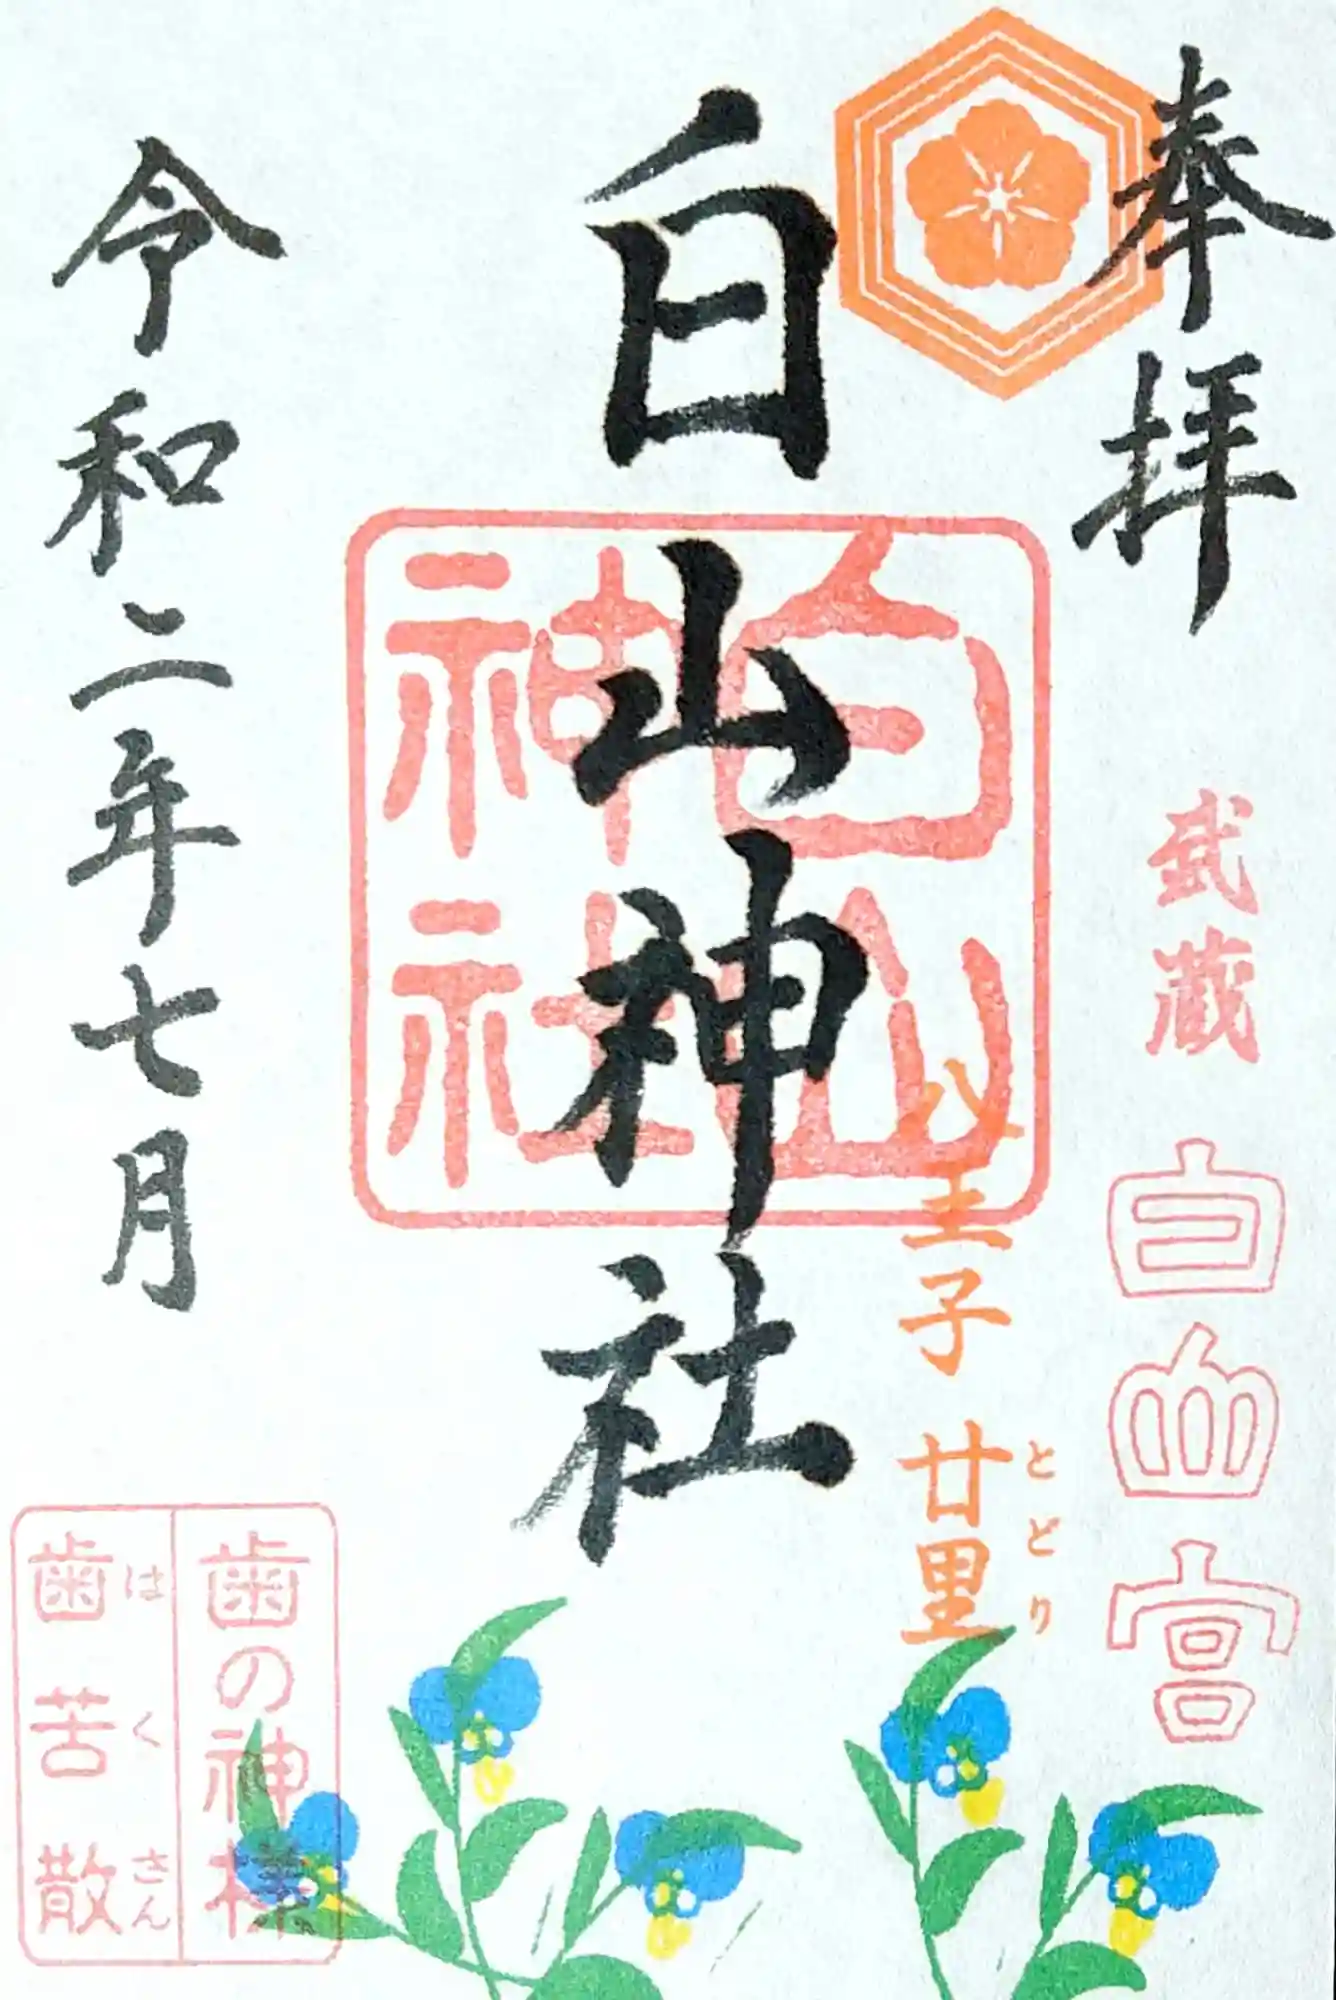 奉拝
武蔵
白山宮
八王子 廿里
とどり
白山神社
白山
神社
令和二年七月
歯の神様
歯苦散
はくさん